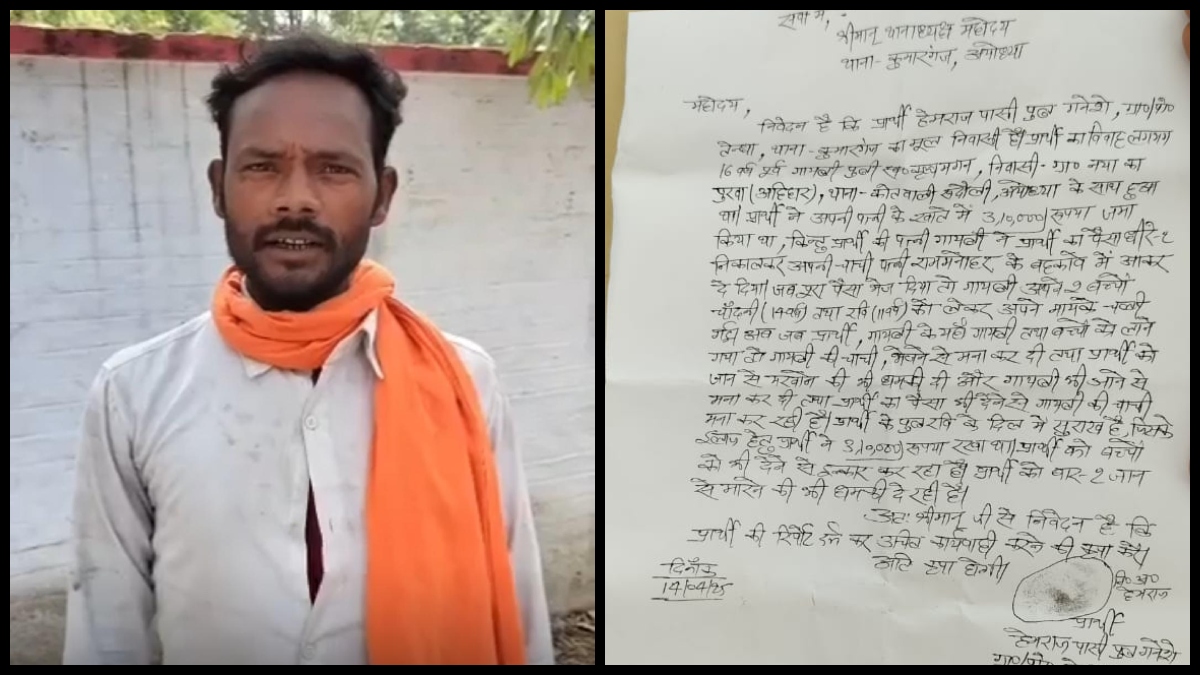 सेवा में,
श्रीमान् थानाध्यक्ष महोदय
थाना- कुमारगंज, अयोध्या
महोदय,
निवेदन है कि प्रार्थी हेमराज पासी पुत्र गनेशे, ग्रा०/पो०
तेन्धा, थाना- कुमारगंज का मूल निवासी है। प्रार्थी का विवाह लगभग
16 वर्ष पूर्व गायत्री पुत्री स्व० मगन, निवासी- ग्रा० नया का
पुरवा (अहिहार), थाना- कोतवाली रुदौली, अयोध्या के साथ हुआ
था। प्रार्थी ने अपनी पत्नी के खाते में 3,10,000/ रूपया जमा
किया था, किन्तु प्रार्थी की पत्नी गायत्री ने प्रार्थी का पैसा धीरे-२
निकालकर अपनी चाची पत्नी राममनोहर के बहकावे में आकर
दे दिया। जब पूरा पैसा भेज दिया तो गायत्री अपने २ बच्चों
चाँदनी (14वर्ष) तथा रवि (11वर्ष) को लेकर अपने मायके चली
गई। अब जब प्रार्थी, गायत्री के यहाँ गायत्री तथा बच्चों को लाने
गया तो गायत्री की चाची, भेजने से मना कर दी तथा प्रार्थी को
जान से मरवाने की भी धमकी दी और गायत्री भी आने से
मना कर दी तथा प्रार्थी का पैसा भी देने से गायत्री की चाची
मना कर रही है। प्रार्थी के पुत्र रवि के दिल में सुराख है, जिसके
इलाज हेतु प्रार्थी ने 3,10,000/ रूपया रखा था। प्रार्थी को बच्चों
को भी देने से इन्कार कर रहा है। प्रार्थी को बार-२ जान
से मारने की भी धमकी दे रही है।
अतः श्रीमान् जी से निवेदन है कि
प्रार्थी की रिपोर्ट दर्ज कर उचित कार्यवाही करने की कृपा करें।
अति कृपा होगी।
दिनाँक
14/04/25
नि० अ०
हेमराज
प्रार्थी
हेमराज पासी पुत्र गनेशे
ग्रा०/पो०